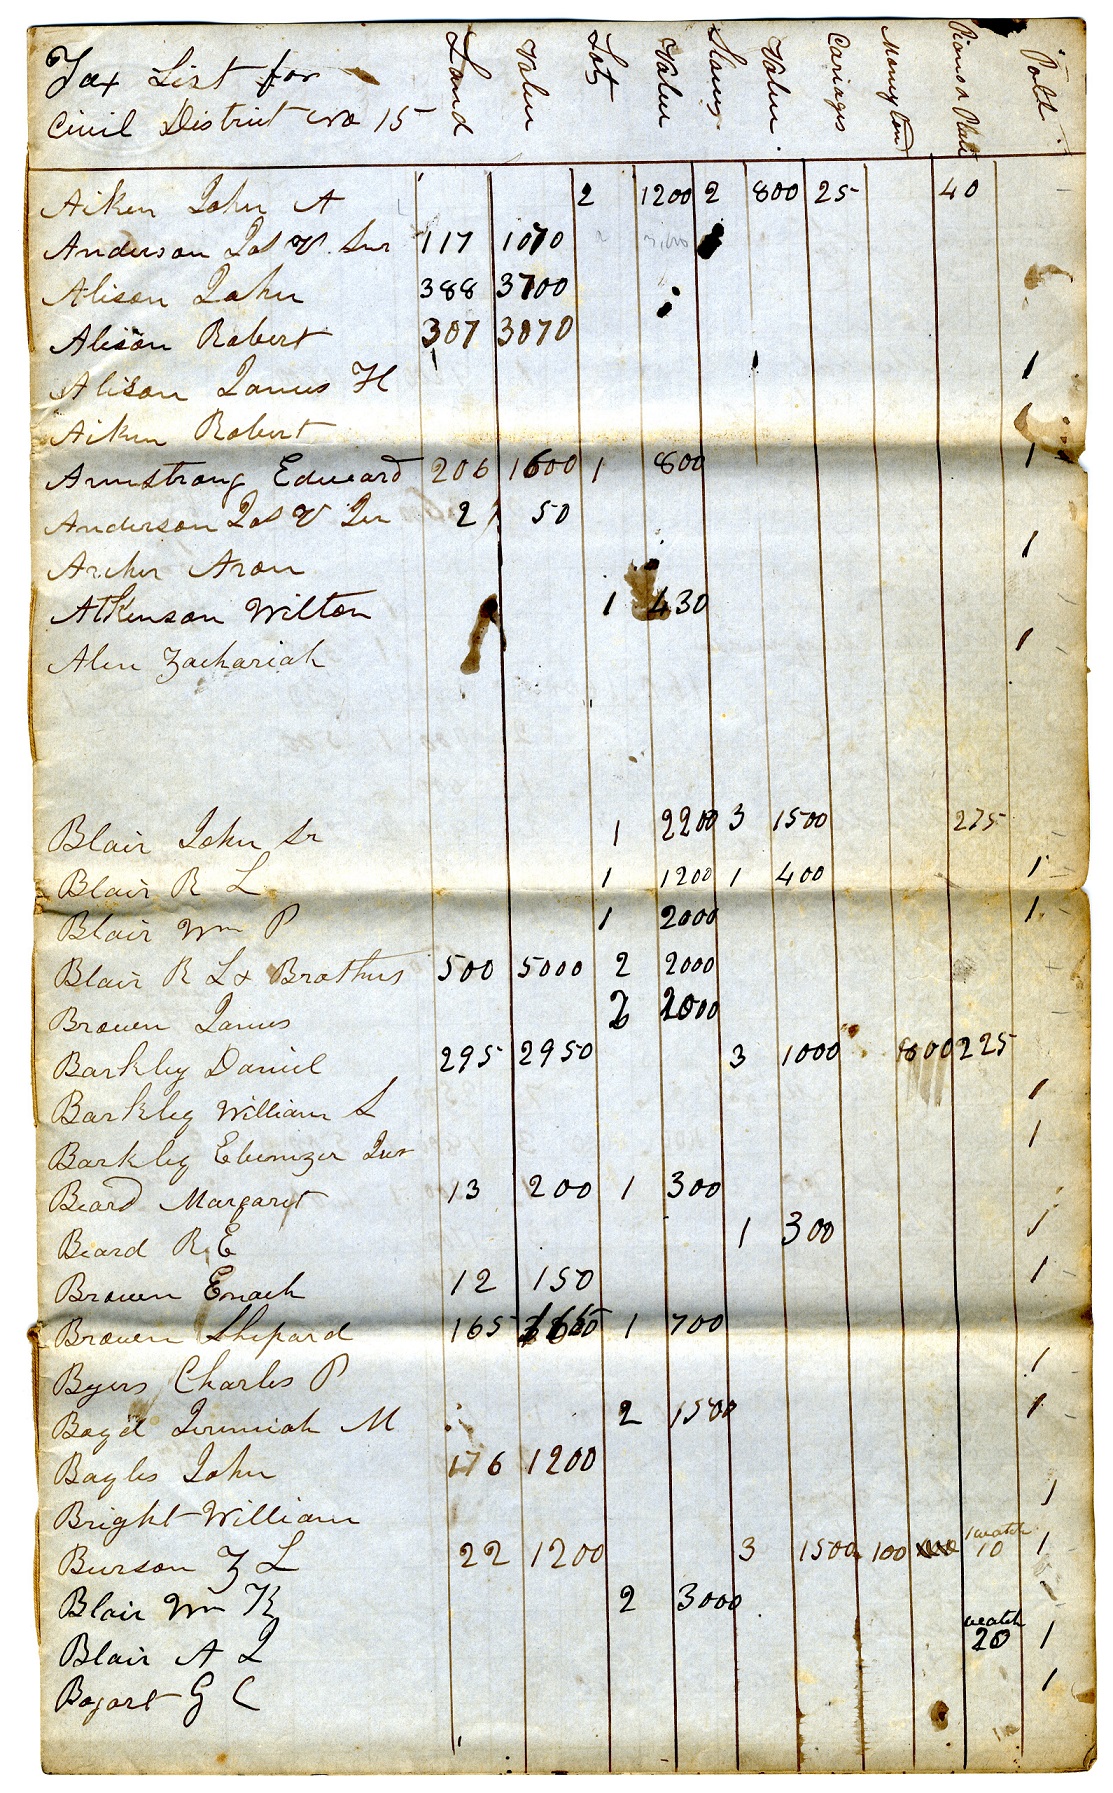 Tax List for
Civil District No 15
Land Value Lot Value Slaves Value Cariages Mony lend Piano & Plate Poll
Aiken John A 2 1200 2 800 25 40
Anderson Jas V. Snr 117 1070
Alison John 388 3700
Alison Robert 307 3070
Alison James H 1
Aiken Robert
Armstrong Edward 206 1600 1 800 1
Anderson Jas V Jur 2 50
Archer Aron 1
Atkinson Wilton 1 430
Alen Zachariah 1
Blair John Sr 1 2200 3 1500 275
Blair R L 1 1200 1 400 1
Blair Wm P 1 2000 1
Blair R L & Brothers 500 5000 2 2000
Browen James 2 2000
Barkley Daniel 295 2950 3 1000 800 225
Barkley William S 1
Barkley Ebenizer Jur 1
Beard Margaret 13 200 1 300
Beard R E 1 300 1
Browen Enoch 12 150 1
Browen Shepard 165 1 700
Byers Charles P 1
Boyd Jerimiah M 2 1500 1
Bayles John 176 1200
Bright William 1
Burson Z L 22 1200 3 1500 100 1 watch 10 1
Blair Wm K 2 3000
Blair A J watch 20 1
Bogart G C 1